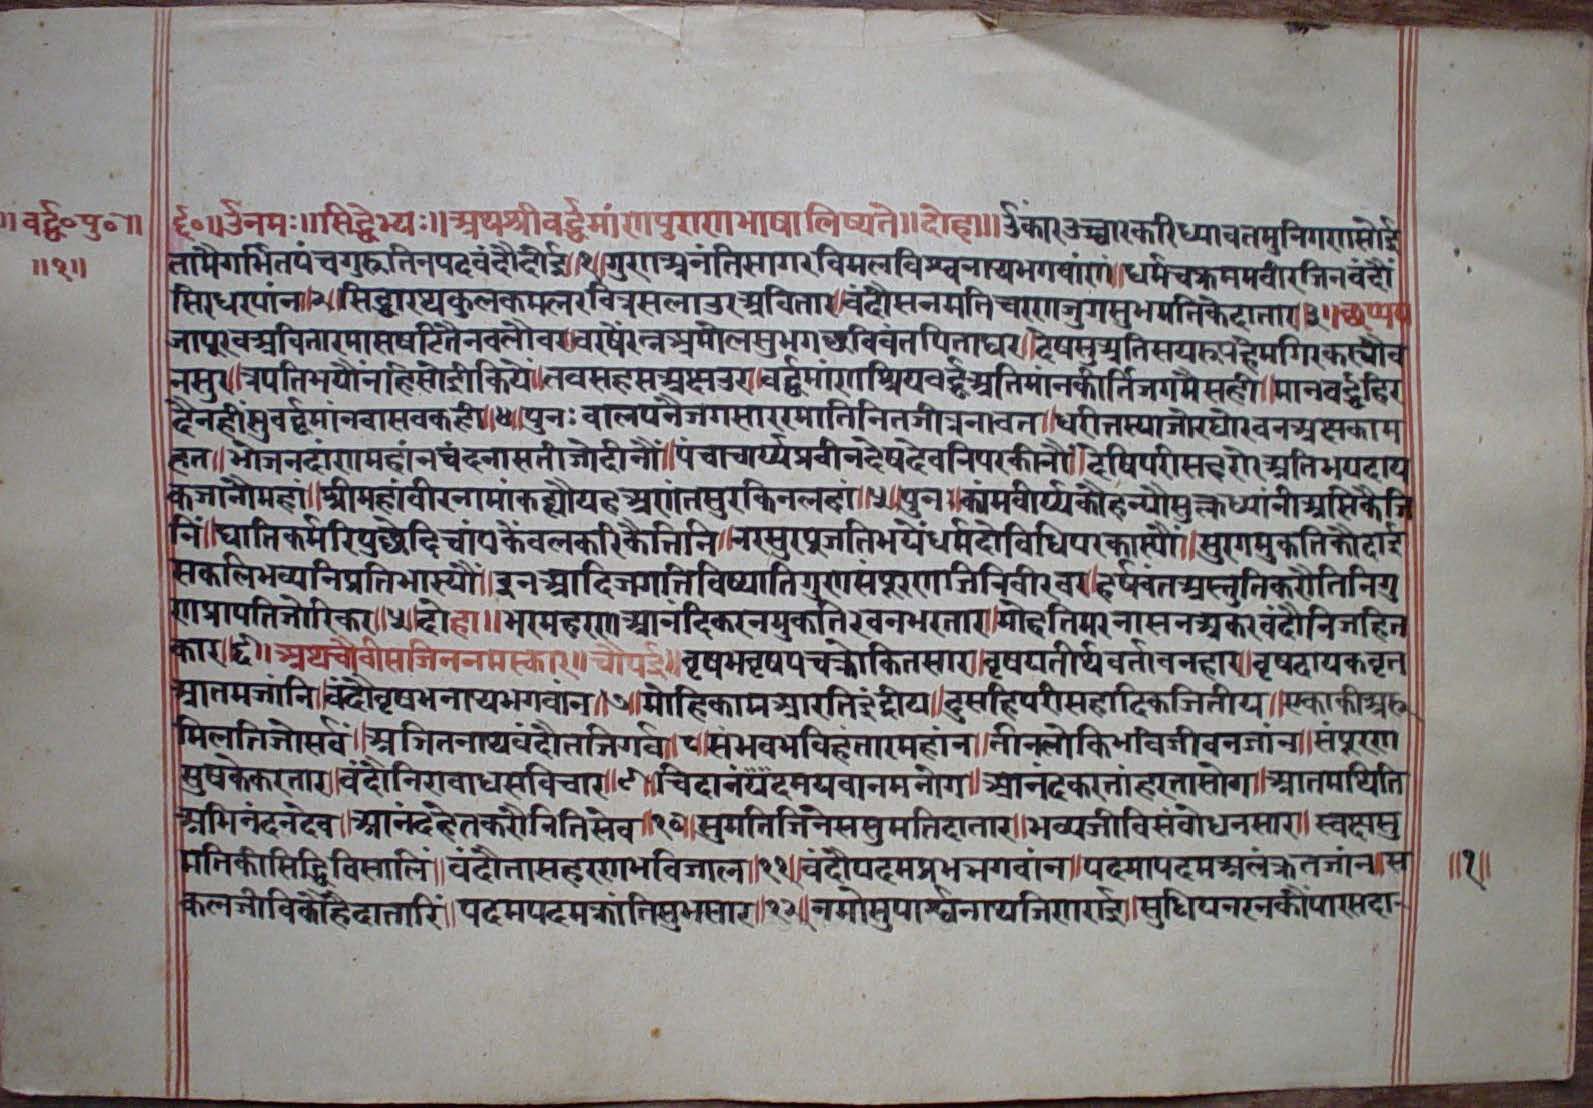 ॥वर्द्ध॰पु॰॥
॥१॥
र्द्द॰॥उँनमः॥सिद्धेभ्यः॥अथश्रीवर्द्धमांणपुराणभाषालिष्यतै॥दोहा॥उँकारउच्चारकरिध्यावतमुनिगणसोई
तांमैगर्भितपंचगुरुतिनपदवंदौदोई॥१॥गुणअनंतिसागरविमलविश्वनाथभगवांण॥धर्मचक्रममवीरजिनवंदौं
सिरधरपांन॥२॥सिद्धारथकुलकमलरवित्रसलाउरअवितार॥वंदौसनमतिचरणजुगसुभमतिकेदातार॥३॥छप्पय
जापूरवअवितारमासषटितैनवलौवर॥वरषैंरत्नअमोलसुभगछविवंतपिताघर॥देषसुअतिसयरूपहेमगिरकरयौव
नसुर॥त्रपतिभयौंनहिसोईकियें॥तवसहसअक्षउर॥वर्द्धमांणश्रियवर्द्धअतिमांनकीर्तिजगमैसही॥मानवर्द्धहिर
दैनहींसुवर्द्धमांनवासवकही॥४॥पुनः वालपनैजगसाररमातिनितजीत्रनावत॥धरीतस्याजोरघोरवनअक्षकाम
हत॥भोजनदांणमहांनचंदनासतीजोदीनौं॥पंचाचार्य्यप्रवीनदेषदेवनिपरकीनौं॥देषिपरीसहरोरअतिभयदाय
कजांनौमहां॥श्रीमहांवीरनामांकह्यौयहअणंतसुरकिनलहां॥५॥पुनः॥कांमवीर्य्यकौहन्यौसुक्लध्यांनीअसिकैजि
निं॥घातिकर्मरिपुछेदिचांपकेंवलकरिकैत्तिनि॥नरसुरपूजतिभयेंधर्मदोविधिपरकास्यौं॥सुरगमुकतिकौदाई
सकलिभव्यनिप्रतिभास्यौं॥इनआदिजगत्तिविष्यातिगुणसंपूरणजिनिवीरवर॥हर्षवंतअस्तुतिकरौतिनिगु
णप्रापतिजोरिकर॥५॥दोहा॥भरमहरणआनंदिकरनमुकतिरवनभरतार॥मोहतिमरनासनअकरवंदौनिजहित
कार॥६॥अथचौवीसजिननमस्कार॥चौपई॥वृषभवृषपचक्रोकितसार॥वृषपतीर्थवर्तावनहार॥वृषदायकवृत
आतमजांनि॥वंदौवृषभनाथभगवांन॥७॥मोहिकामआरतिइंद्रीय॥दुसहिपरीसहादिकजितीय॥एकाकीअरु
मिलतिजौसर्व॥अजितनाथवंदौतजिगर्व॥८॥संभवभविहंतारमहांन॥तीनलोकिभविजीवनजांन॥संपूरण
सुषकेकरतार॥वंदौनिरावाधसविचार॥९॥चिदानंददमयवानमनोग॥आनंदकरतांहरतासोग॥आतमथिति
अभिनंदनदेव॥आनंदहेतकरौनितिसेव॥१०॥सुमतिजिनेससुमतिदातार॥भव्यजीविसंवोधनसार॥स्वछासु
मतिकीसिद्धिविसालिं॥वंदौतासहरणभविजाल॥११॥वंदौपदमप्रभभगवांन॥पदमापदमअलंक्रतजांन॥स
॥१॥
कलजीविकौहैदातारिं॥पदमपदमक्रांतिसुभसार॥१२॥नमौसुपार्श्वनाथजिणराई॥सुधियनरनकौंपारसदा